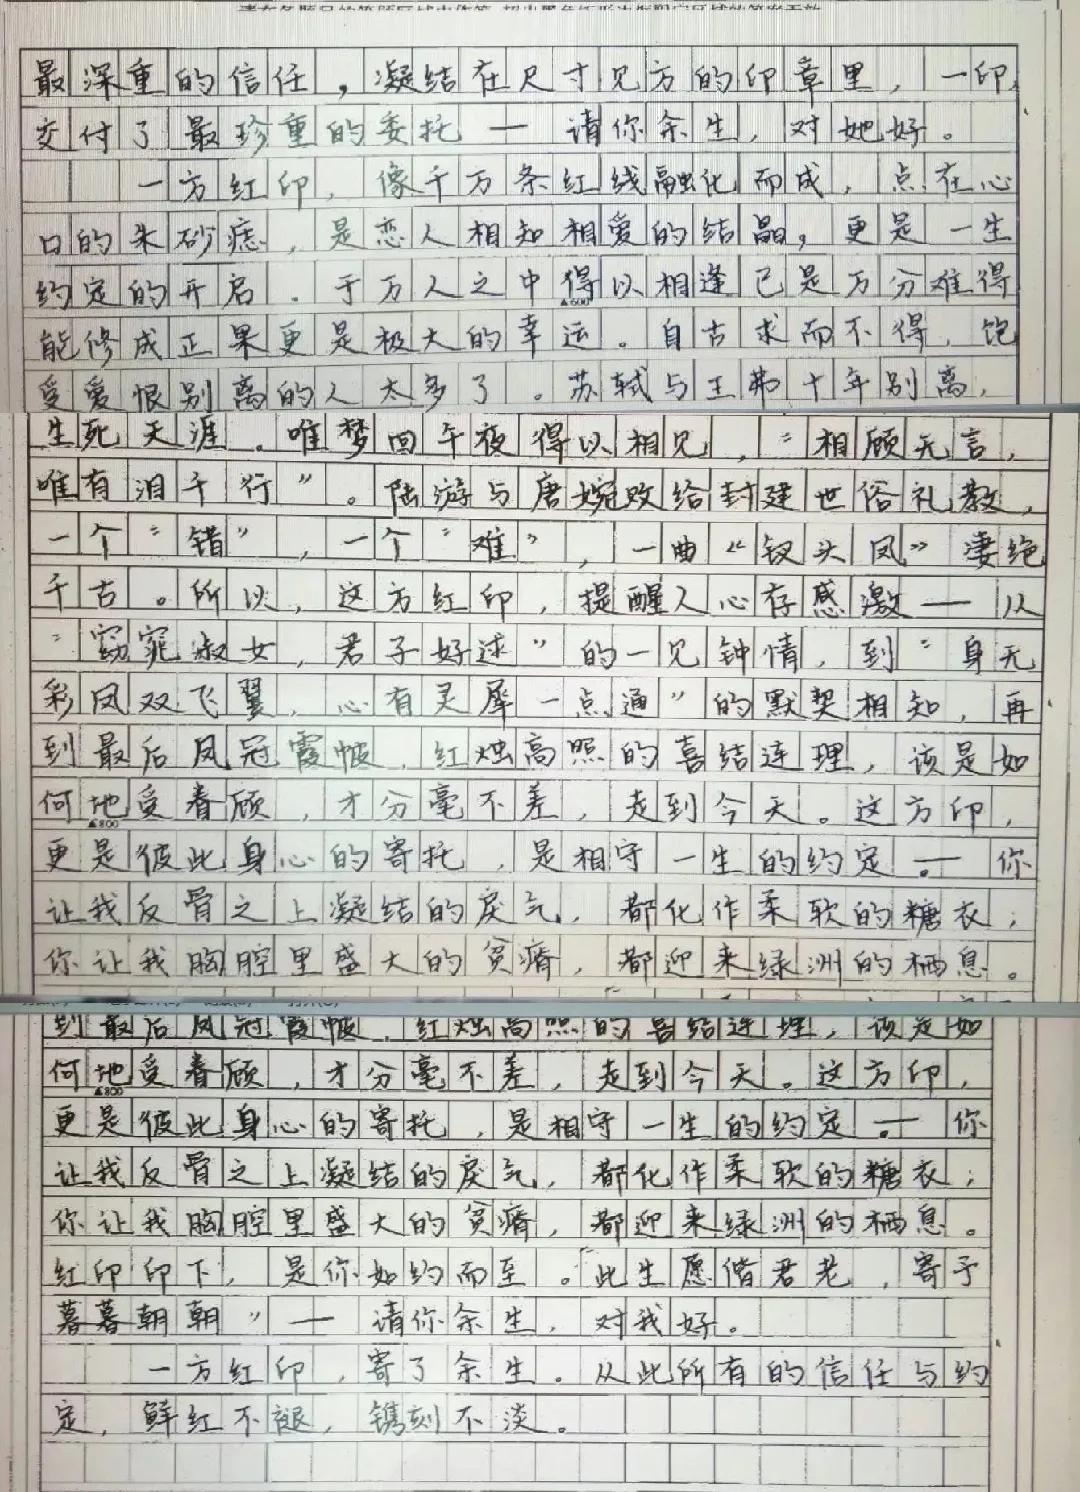 最深重的信任，凝结在尺寸见方的印章里，一印
交付了最珍重的委托——请你余生，对她好。
一方红印，像千万条红线融化而成，点在心
口的朱砂痣，是恋人相知相爱的结晶，更是一生
约定的开启。于万人之中得以相逢已是万分难得
▲600
能修成正果更是极大的幸运。自古求而不得，饱
受爱恨别离的人太多了。苏轼与王弗十年别离，
生死天涯。唯梦回午夜得以相见，“相顾无言，
唯有泪千行”。陆游与唐婉败给封建世俗礼教，
一个“错”，一个“难”，一曲“钗头凤”凄绝
千古。所以，这方红印，提醒人心存感激——从
“窈窕淑女，君子好逑”的一见钟情，到“身无
彩凤双飞翼，心有灵犀一点通”的默契相知，再
到最后凤冠霞帔，红烛高照的喜结连理，该是如
何地受眷顾，才分毫不差，走到今天。这方印，
▲800
更是彼此身心的寄托，是相守一生的约定。——你
让我反骨之上凝结的戾气，都化作柔软的糖衣；
你让我胸腔里盛大的贫瘠，都迎来绿洲的栖息。
到最后凤冠霞帔，红烛高照的喜结连理，该是如
何地受眷顾，才分毫不差，走到今天。这方印，
▲800
更是彼此身心的寄托，是相守一生的约定。——你
让我反骨之上凝结的戾气，都化作柔软的糖衣；
你让我胸腔里盛大的贫瘠，都迎来绿洲的栖息。
红印印下，是你如约而至。此生愿偕君老，寄予
暮暮朝朝”——请你余生，对我好。
一方红印，寄了余生。从此所有的信任与约
定，鲜红不褪，镌刻不淡。